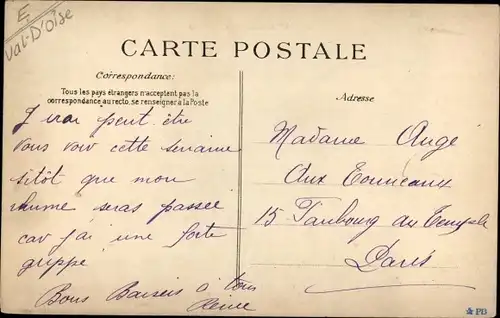 E
Val-D'Oise
CARTE POSTALE
Correspondance:
Tous les pays étrangers n'acceptent pas la
correspondance au recto, se renseigner à la Poste
Adresse
J'irai peut être
vous voir cette semaine
sitôt que mon
rhume seras passée
car j'ai une forte
grippe
Bons Baisers à tous
Madame Angé
Aux Tonneaux
15 Faubourg du Temple
Paris
PB